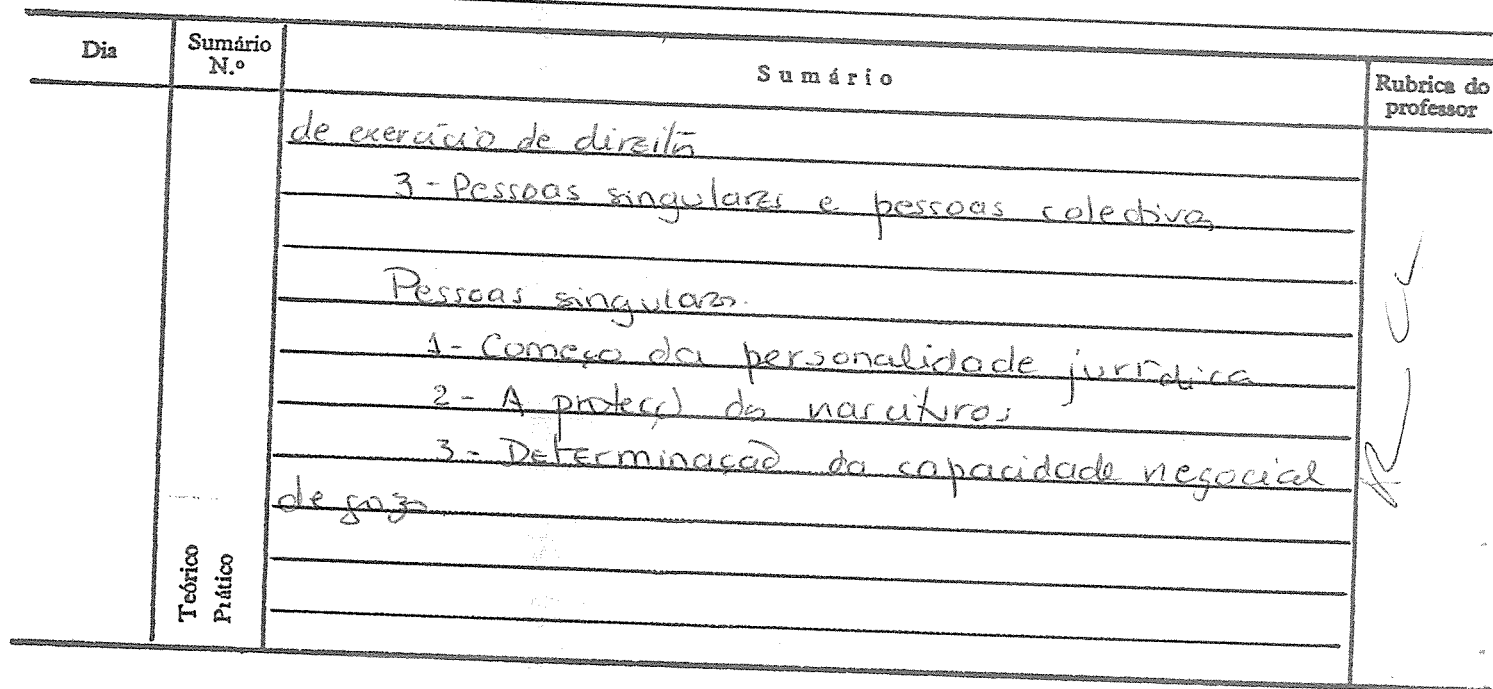 Dia
Sumário
N.º
Sumário
Rubrica do
professor
de exercício de direitos
3 - Pessoas singulares e pessoas coletivas
Pessoas singulares.
1 - Começo da personalidade jurídica
2 - A protecção dos nascituros
3 - Determinação da capacidade negocial
de gozo
Teórico
Prático